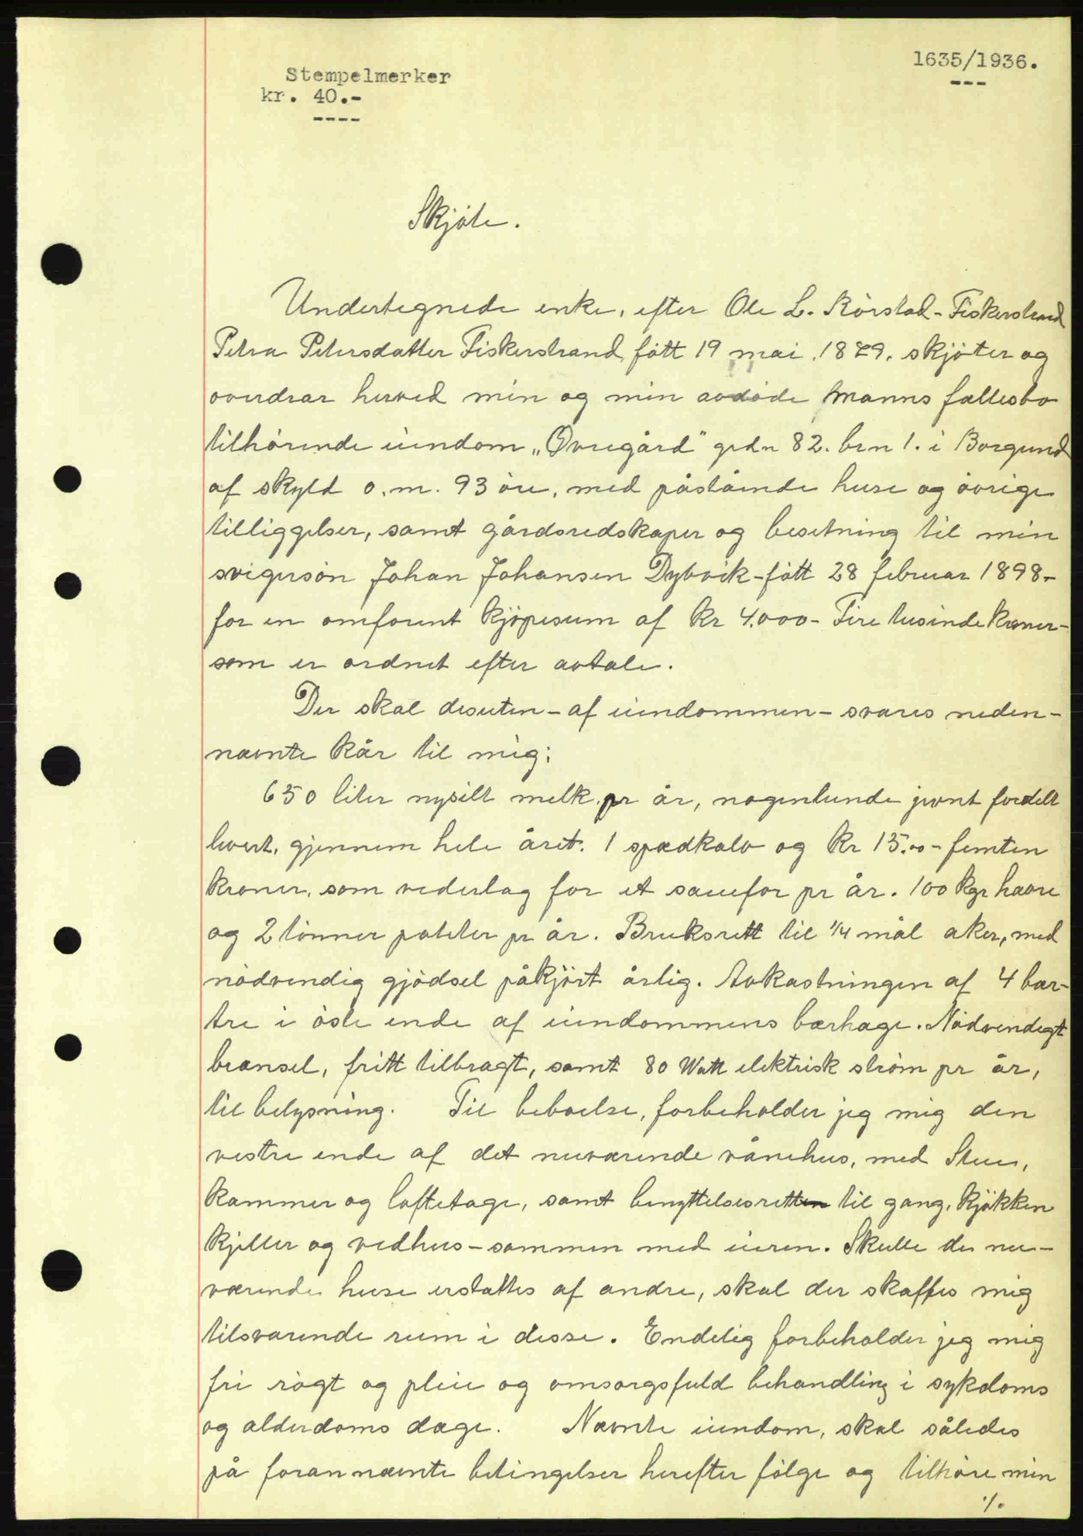 1635/1936.
---
Stempelmerker
kr. 40.-
----
Skjøte.
Undertegnede enke, efter Ole L. Rörstad-Fiskerstrand
Petra Petersdatter Fiskerstrand, fött 19 mai 1879. skjöter og
overdrar herved min og min avdöde manns fællesbo
tilhörende eiendom „Övregård" grdn 82. brn 1. i Borgund
af skyld o. m. 93 öre, med påstående huse og övrige
tilliggelser, samt gårdsredskaper og besetning til min
svigersön Johan Johansen Dybvik-fött 28 februar 1898-
for en omforent kjöpesum af kr 4.000- Fire tusinde kroner-
som er ordnet efter avtale.
Der skal desuten-af eiendommen-svares neden-
nævnte kår til mig:
650 liter nysilt melk pr år, nogenlunde jevnt fordelt
hvert, gjennem hele året. 1 spædkalv og kr 15.00- femten
kroner, som vederlag for et sauefor pr år. 100 kgr havre
og 2 tönner poteter pr år. Bruksrett til 1/4 mål aker, med
nödvendig gjödsel påkjört årlig. Avkastningen af 4 bær-
træ i öste ende af eiendommens bærhage. Nödvendigt
brænsel, fritt tilbragt, samt 80 Watt elektrisk ström pr år,
til belysning. Til beboelse, forbeholder jeg mig den
vestre ende af det nuværende vånehus, med Stue,
kammer og loftetage, samt benyttelsesretten til gang, kjökken
kjeller og vedhus-sammen med eieren. Skulle de nu-
værende huse erstattes af andre, skal der skaffes mig
tilsvarende rum i disse. Endelig forbeholder jeg mig
fri rögt og pleie og omsorgsfuld behandling i sykdoms
og alderdoms dage. Nævnte eiendom, skal således
på forannævnte betingelser herefter fölge og tilhöre min
./.